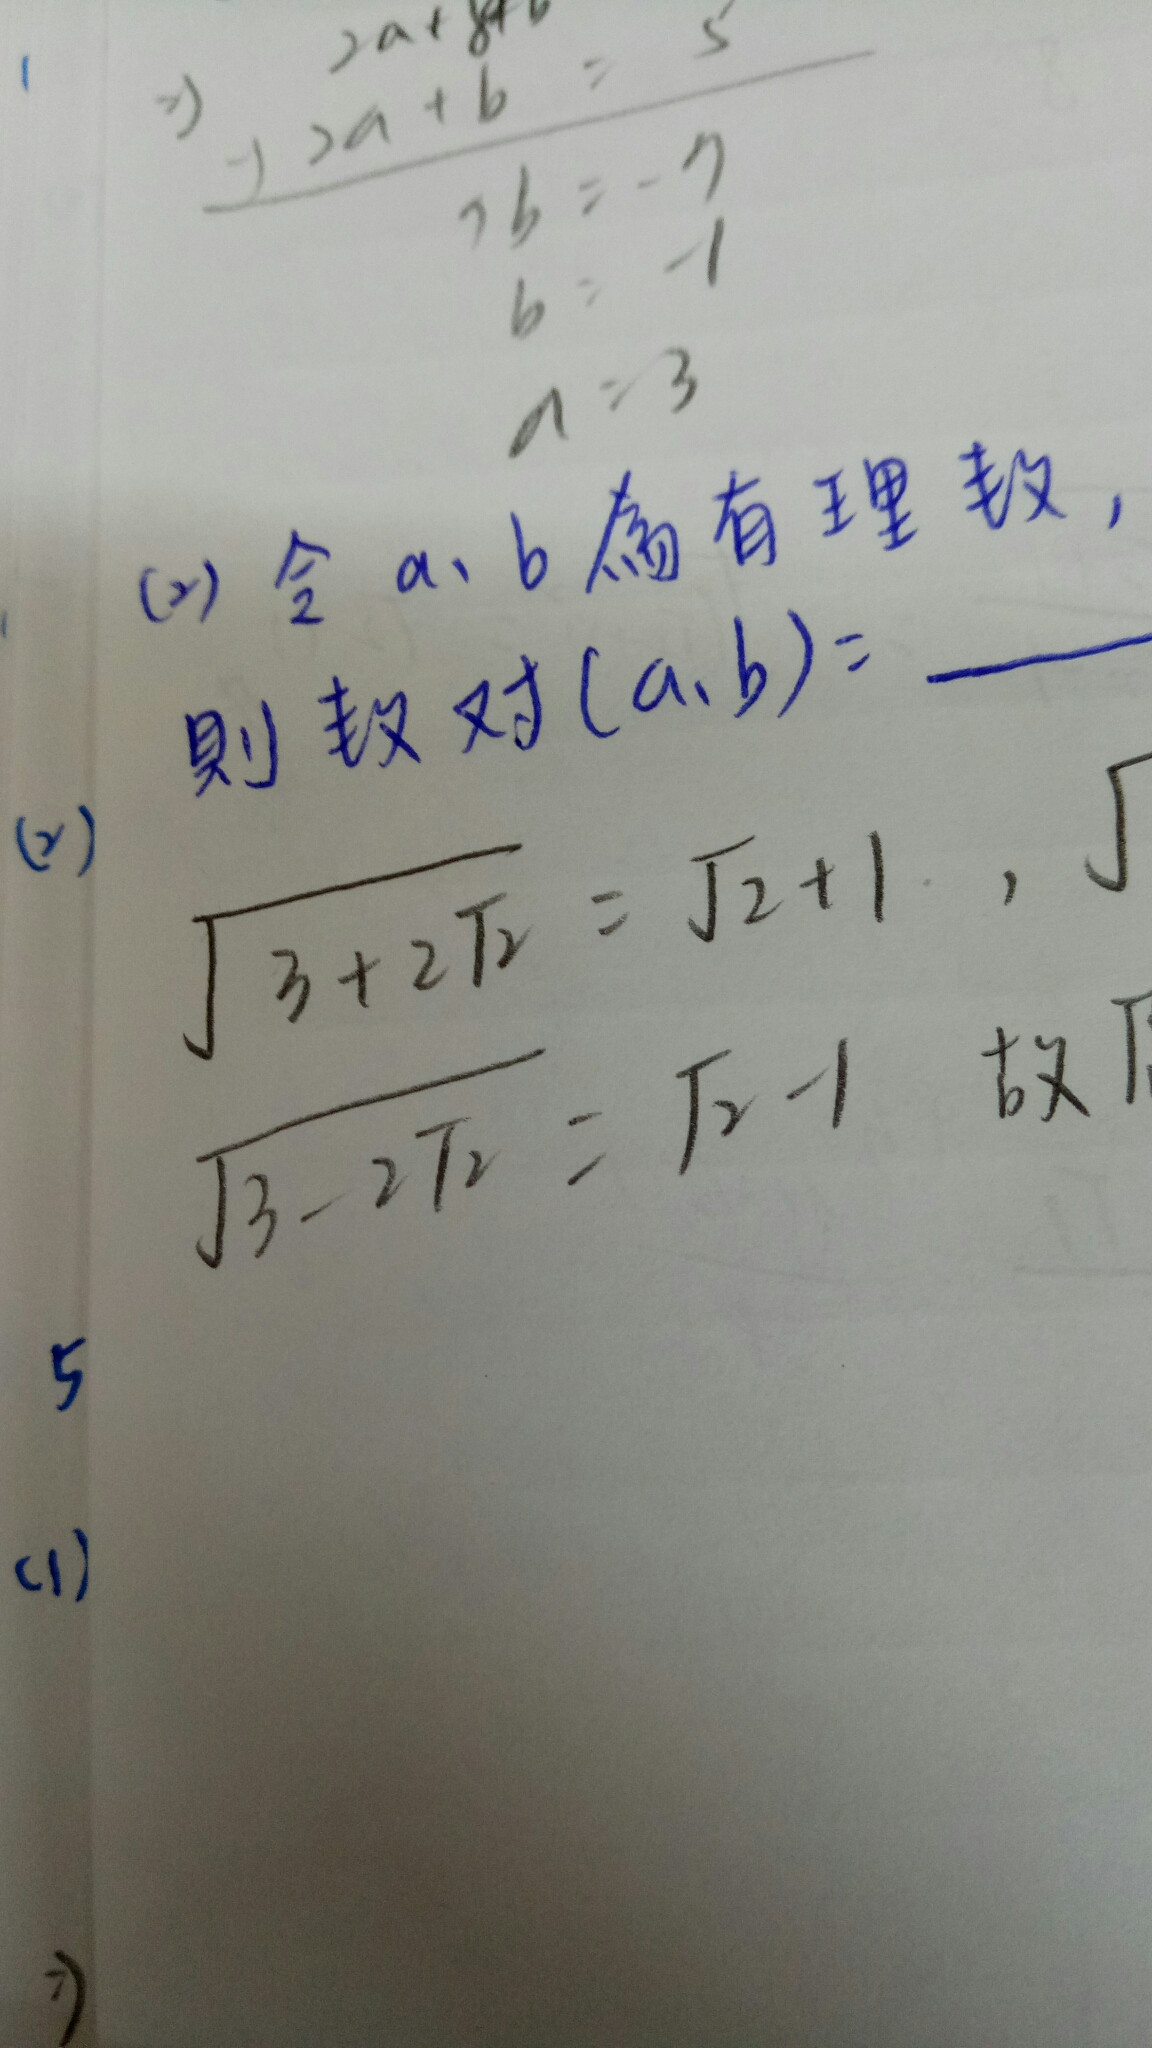 1
2a+8+b
⇒ -) 2a+b = 5
7b = -7
b = -1
a = 3
(2) 令 a、b 為有理数,
則数对(a、b)=
(2)
√3+2√2 = √2+1 , √
√3-2√2 = √2-1 故
5
(1)
⇒